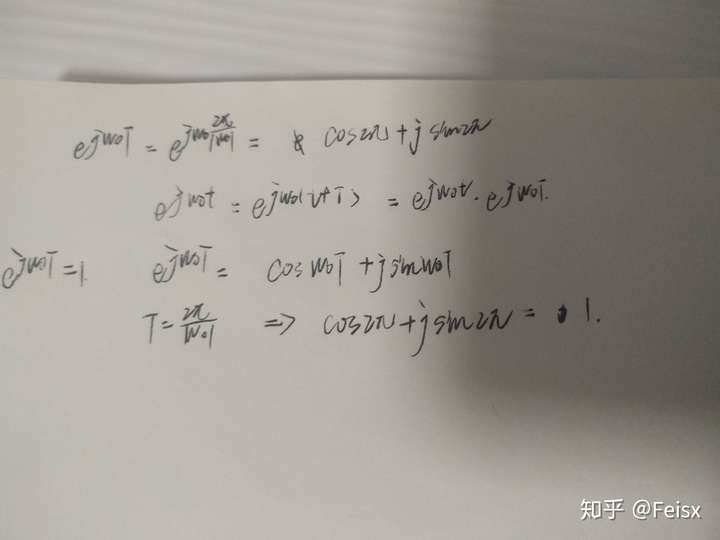 e^{jw₀T} = e^{jw₀\frac{2π}{|w₀|}} = cos2π + j sin2π
e^{jw₀t} = e^{jw₀(t+T)} = e^{jw₀t} · e^{jw₀T}.
e^{jw₀T} = 1. e^{jw₀T} = cos w₀T + j sin w₀T
T = \frac{2π}{|w₀|} => cos2π + j sin2π = 1.
知乎 @Feisx